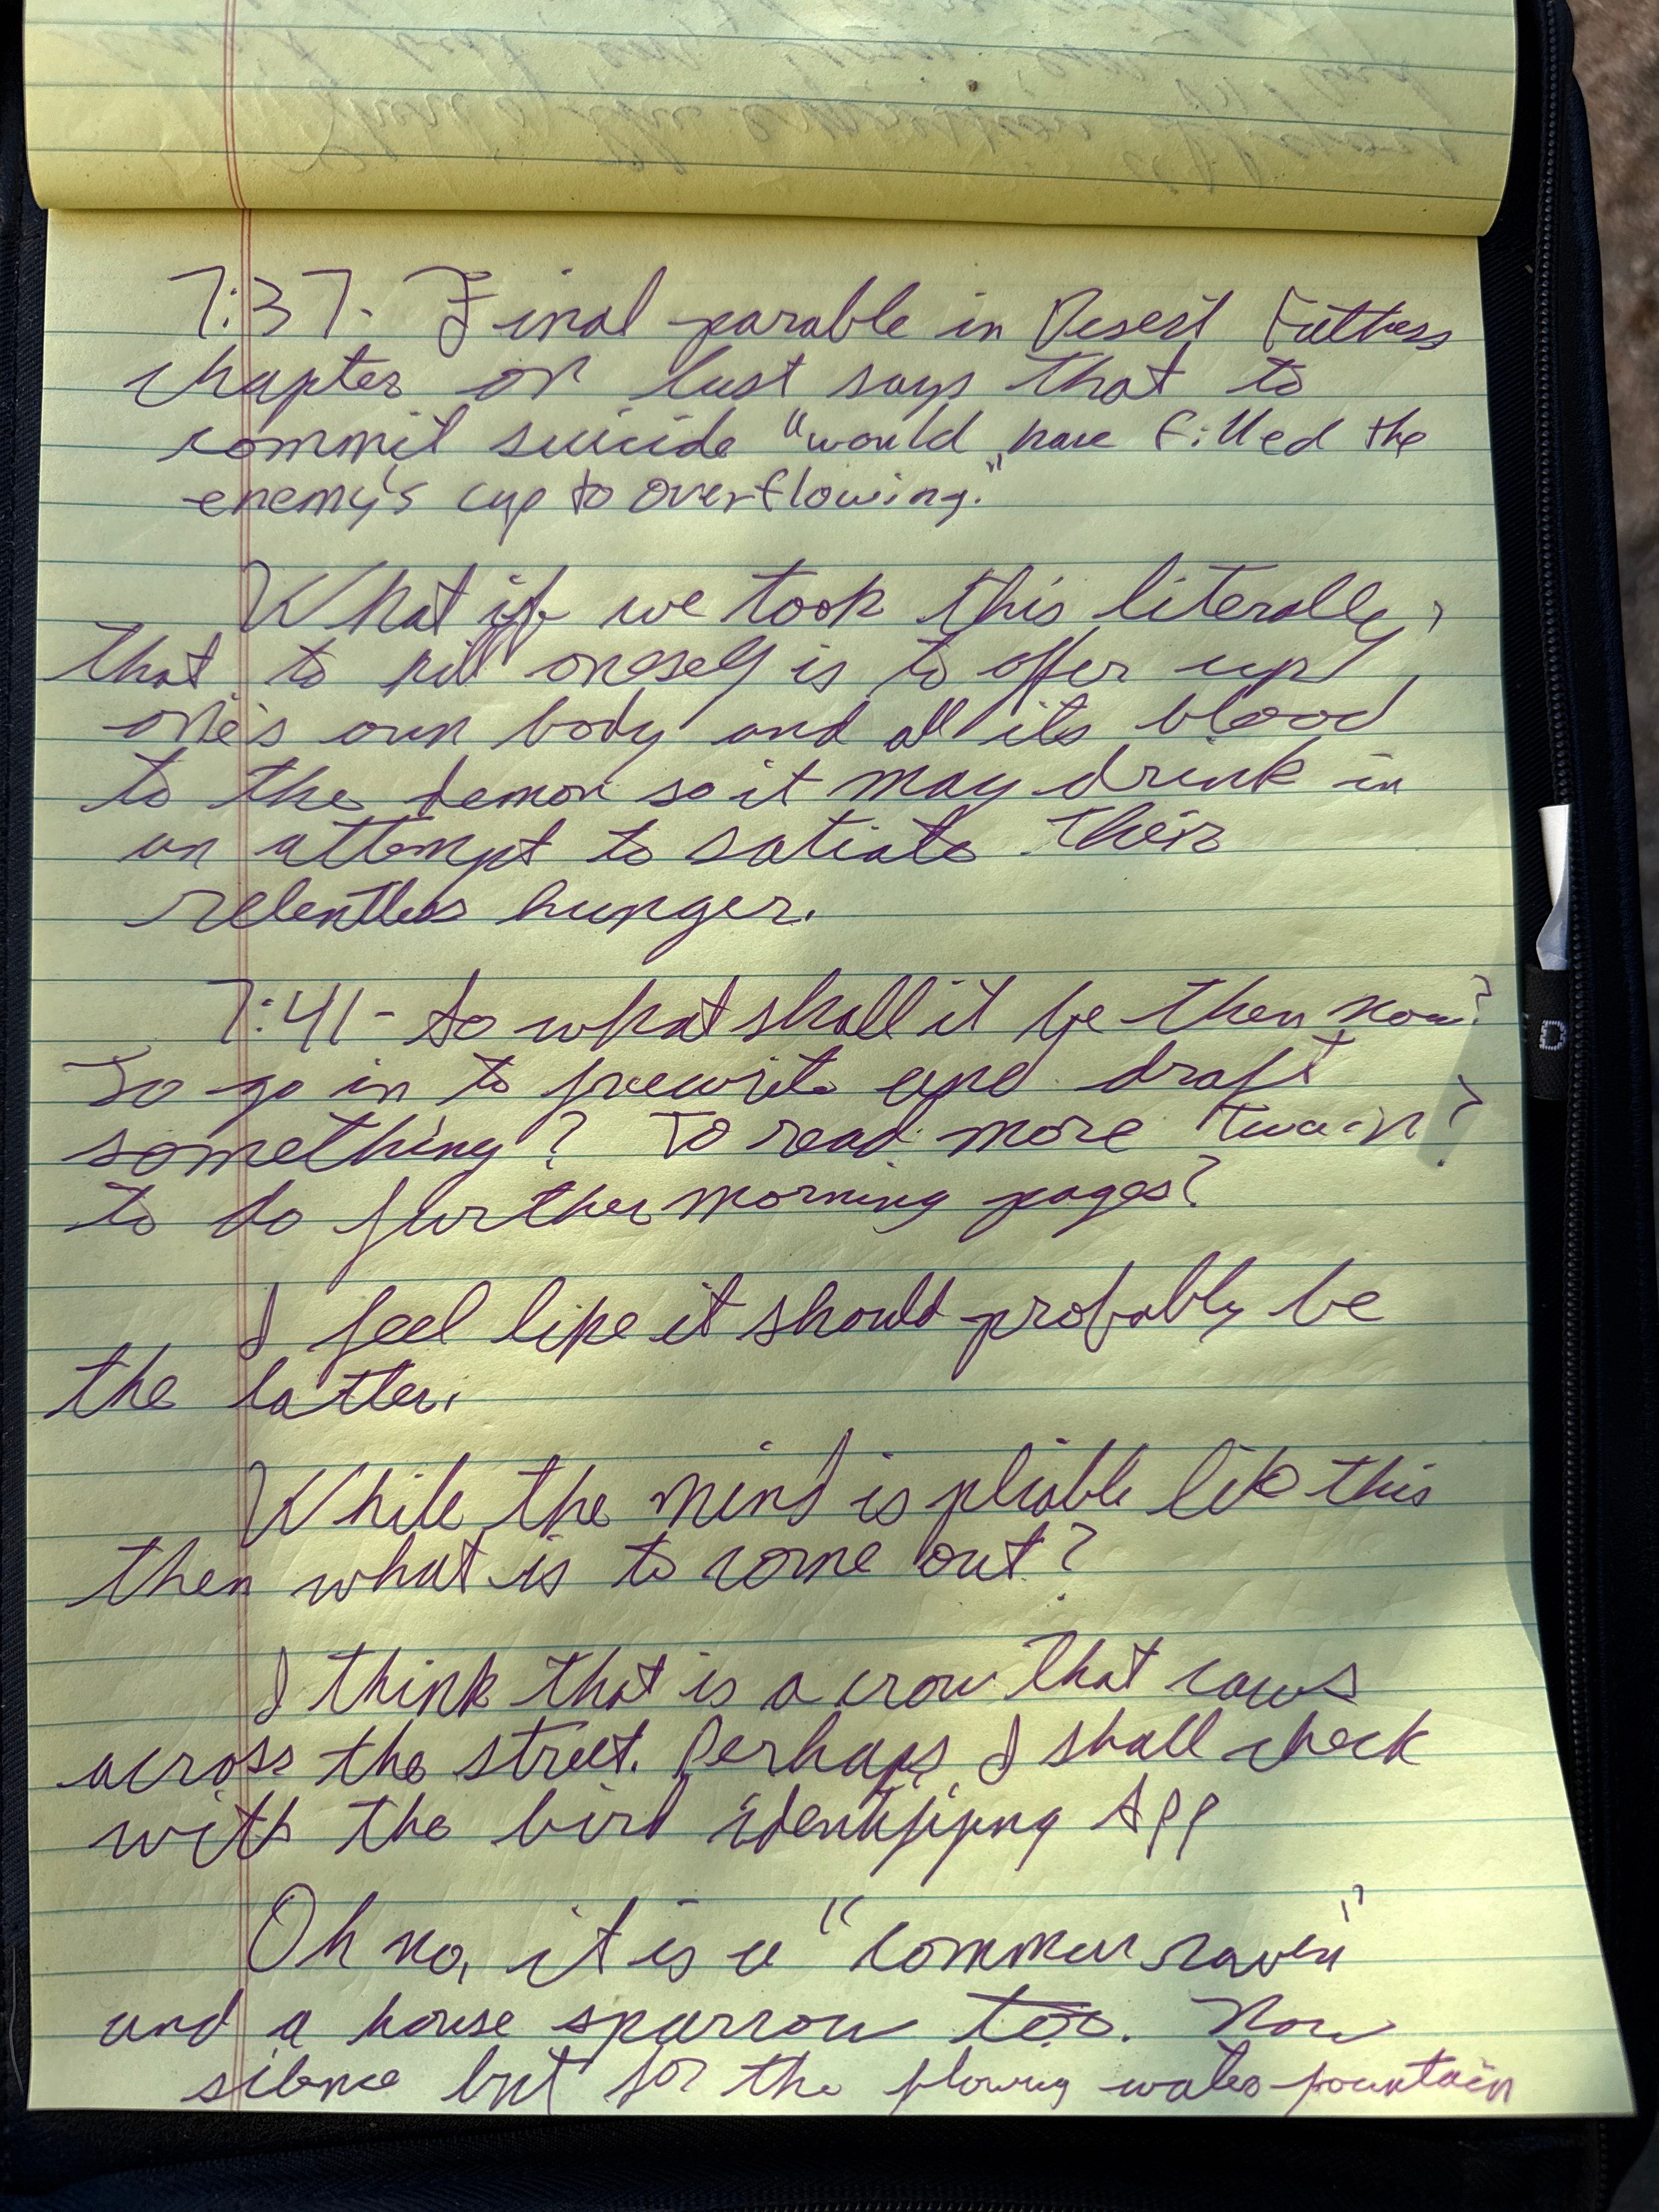 7:37- Final parable in Desert Fathers
chapter on lust says that to
commit suicide "would have filled the
enemy's cup to overflowing."
What if we took this literally,
that to kill oneself is to offer up
one's own body and all its blood
to the demon so it may drink in
an attempt to satiate their
relentless hunger.
7:41- So what shall it be then now?
To go in to prewrite and draft
something? To read more Twain?
to do further morning pages?
I feel like it should probably be
the latter.
While the mind is pliable like this
then what is to come out?
I think that is a crow that caws
across the street. Perhaps I shall check
with the bird identifying App
Oh no, it is a "common raven"
and a house sparrow too. Now
silence but for the flowing water fountain